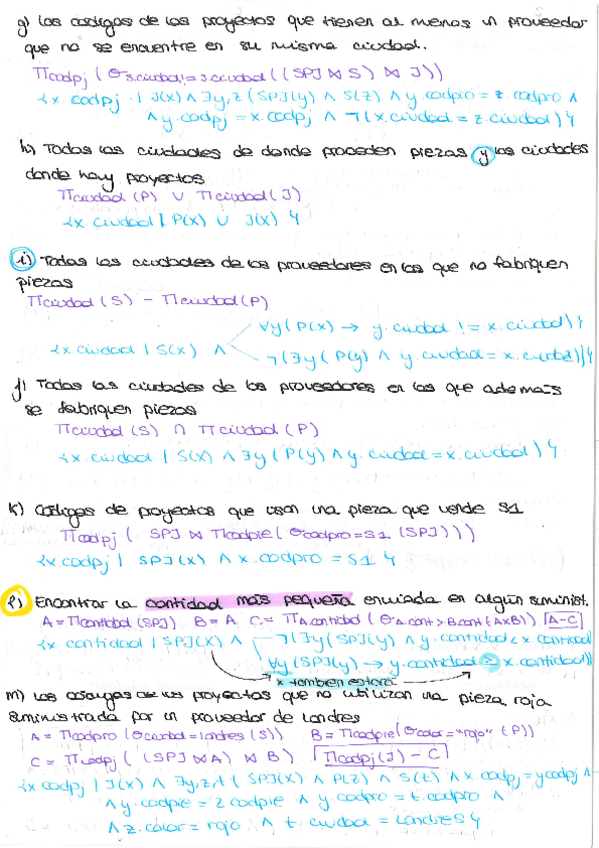 g) Los codigos de los proyectos que tienen al menos un proveedor
que no se encuentre en su misma ciudad.
Πcodpj ( σs.ciudad!=J.ciudad ((SPJ ⋈ S) ⋈ J))
{x.codpj | J(x) ∧ ∃y,z (SPJ(y) ∧ S(z) ∧ y.codpro = z.codpro ∧
∧ y.codpj = x.codpj ∧ ¬(x.ciudad = z.ciudad)}
h) Todas las ciudades de donde proceden piezas y las ciudades
donde hay proyectos
Πciudad (P) ∪ Πciudad (J)
{x.ciudad | P(x) ∪ J(x)}
i) Todas las ciudades de los proveedores en las que no fabriquen
piezas
Πciudad (S) - Πciudad (P)
∀y(P(x) → y.ciudad != x.ciudad)}
{x.ciudad | S(x) ∧
¬(∃y(P(y) ∧ y.ciudad = x.ciudad))}
j) Todas las ciudades de los proveedores en las que además
se fabriquen piezas
Πciudad (S) ∩ Πciudad (P)
{x.ciudad | S(x) ∧ ∃y(P(y) ∧ y.ciudad = x.ciudad)}
k) Códigos de proyectos que usan una pieza que vende S1
Πcodpj ( SPJ ⋈ Πcodpie ( σcodpro=S1 (SPJ)))
{x.codpj | SPJ(x) ∧ x.codpro = S1}
l) Encontrar la cantidad más pequeña enviada en algún suminist.
A = Πcantidad (SPJ) B = A C = ΠA.cantidad ( σA.cant>B.cant (AxB)) A-C
{x.cantidad | SPJ(x) ∧ ¬(∃y(SPJ(y) ∧ y.cantidad < x.cantidad
∀y(SPJ(y) → y.cantidad ≥ x.cantidad)}
x tambien estará
m) Los códigos de los proyectos que no utilizan una pieza roja
suministrada por un proveedor de Londres
A = Πcodpro (σciudad=londres (S)) B = Πcodpie(σcolor="rojo" (P))
C = Πcodpj ( (SPJ⋈A) ⋈ B) Πcodpj(J) - C
{x codpj | J(x) ∧ ∃y,z,t ( SPJ(x) ∧ P(z) ∧ S(t) ∧ x codpj = y codpj ∧
∧ y.codpie = z codpie ∧ y.codpro = t.codpro ∧
∧ z.color = rojo ∧ t.ciudad = Londres}